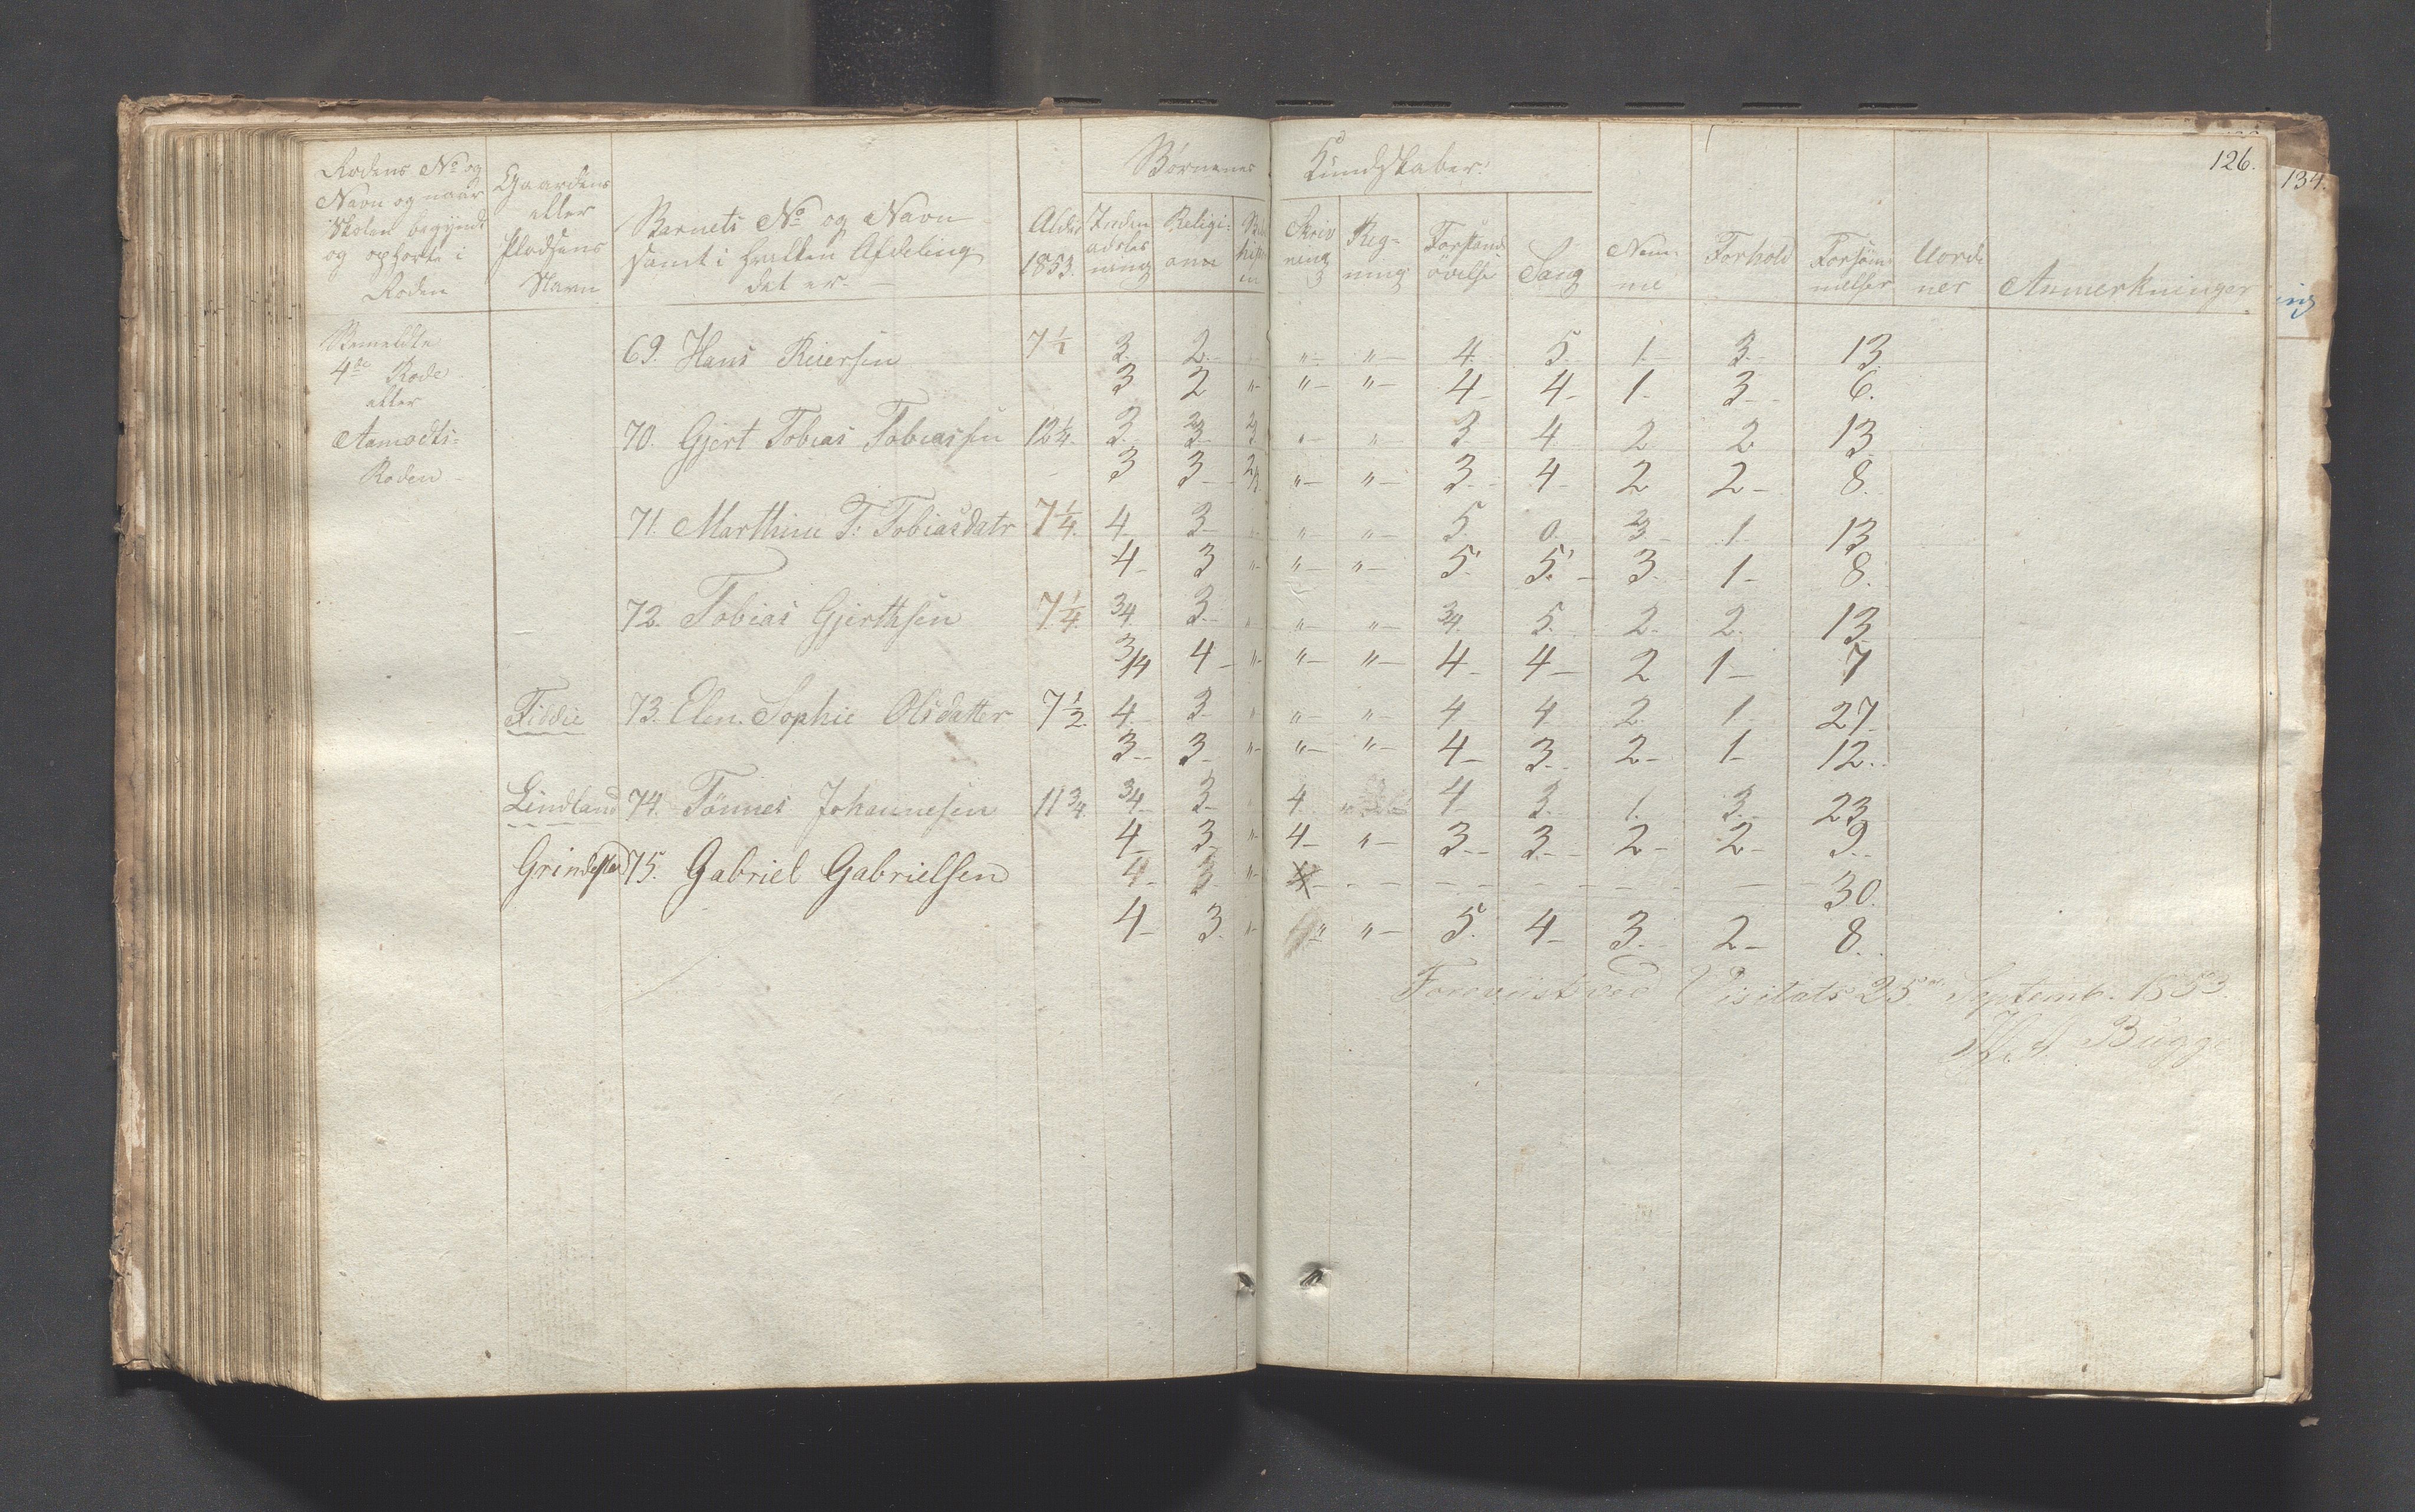 126.
134.
Børnenes Kundskaber.
Rodens No og
Navn og naar
Skolen begyndt
og ophørte i
Roden
Gaardens
eller
Pladsens
Navn
Barnets No og Navn
samt i hvilken Afdeling
det er
Alder
1853.
Inden
adsles
ning
Religi-
onn
Skriv
ning
Reg-
ning
Forstands
øvelse
Sang
Nem-
me
Forhold
Forsøm
melser
Uorde
ner
Anmerkninger
Bemeldte
4de Rode
eller
Aamodts-
Roden
69. Hans Reiersen 7 1/4 3. 2. " " 4. 5. 1. 3. 13.
3 2 " " " 4 4 1. 3. 6.
70. Gjert Tobias Tobiassen 12 1/4. 3. 2/3 2/3 " " 3 4 2 2 13
3 3 2/3 " " 3. 4 2 2 8.
71. Marthine T. Tobiasdatr 7 1/4. 4 3 " " 5 0. 2/3 1. 13
4 3 " " " 5. 5. 3. 1 8.
72. Tobias Gjerthsen 7 1/4. 3/4 3. " " " 3/4. 5. 2. 2. 13
3/4 4 " " " 4 4 2 1 7
Fiddie 73. Elen Sophie Olsdatter 7 1/2. 4 3 " " " 4 4 2 1 27
3 3 " " " 4 3. 2 1 12.
Lindland 74. Tönnes Johannesen 11 3/4. 3/4 3 4 " 4 3. 1. 3. 23
4 3 " 4 " 3 3 2 2 9.
Grindsted 75. Gabriel Gabrielsen 4 3 " 4 - - - - - - 30.
4 3. " " " 5. 4 3. 2 8.
Foreviist ved Visitats 25de Septemb. 1853.
Bugge